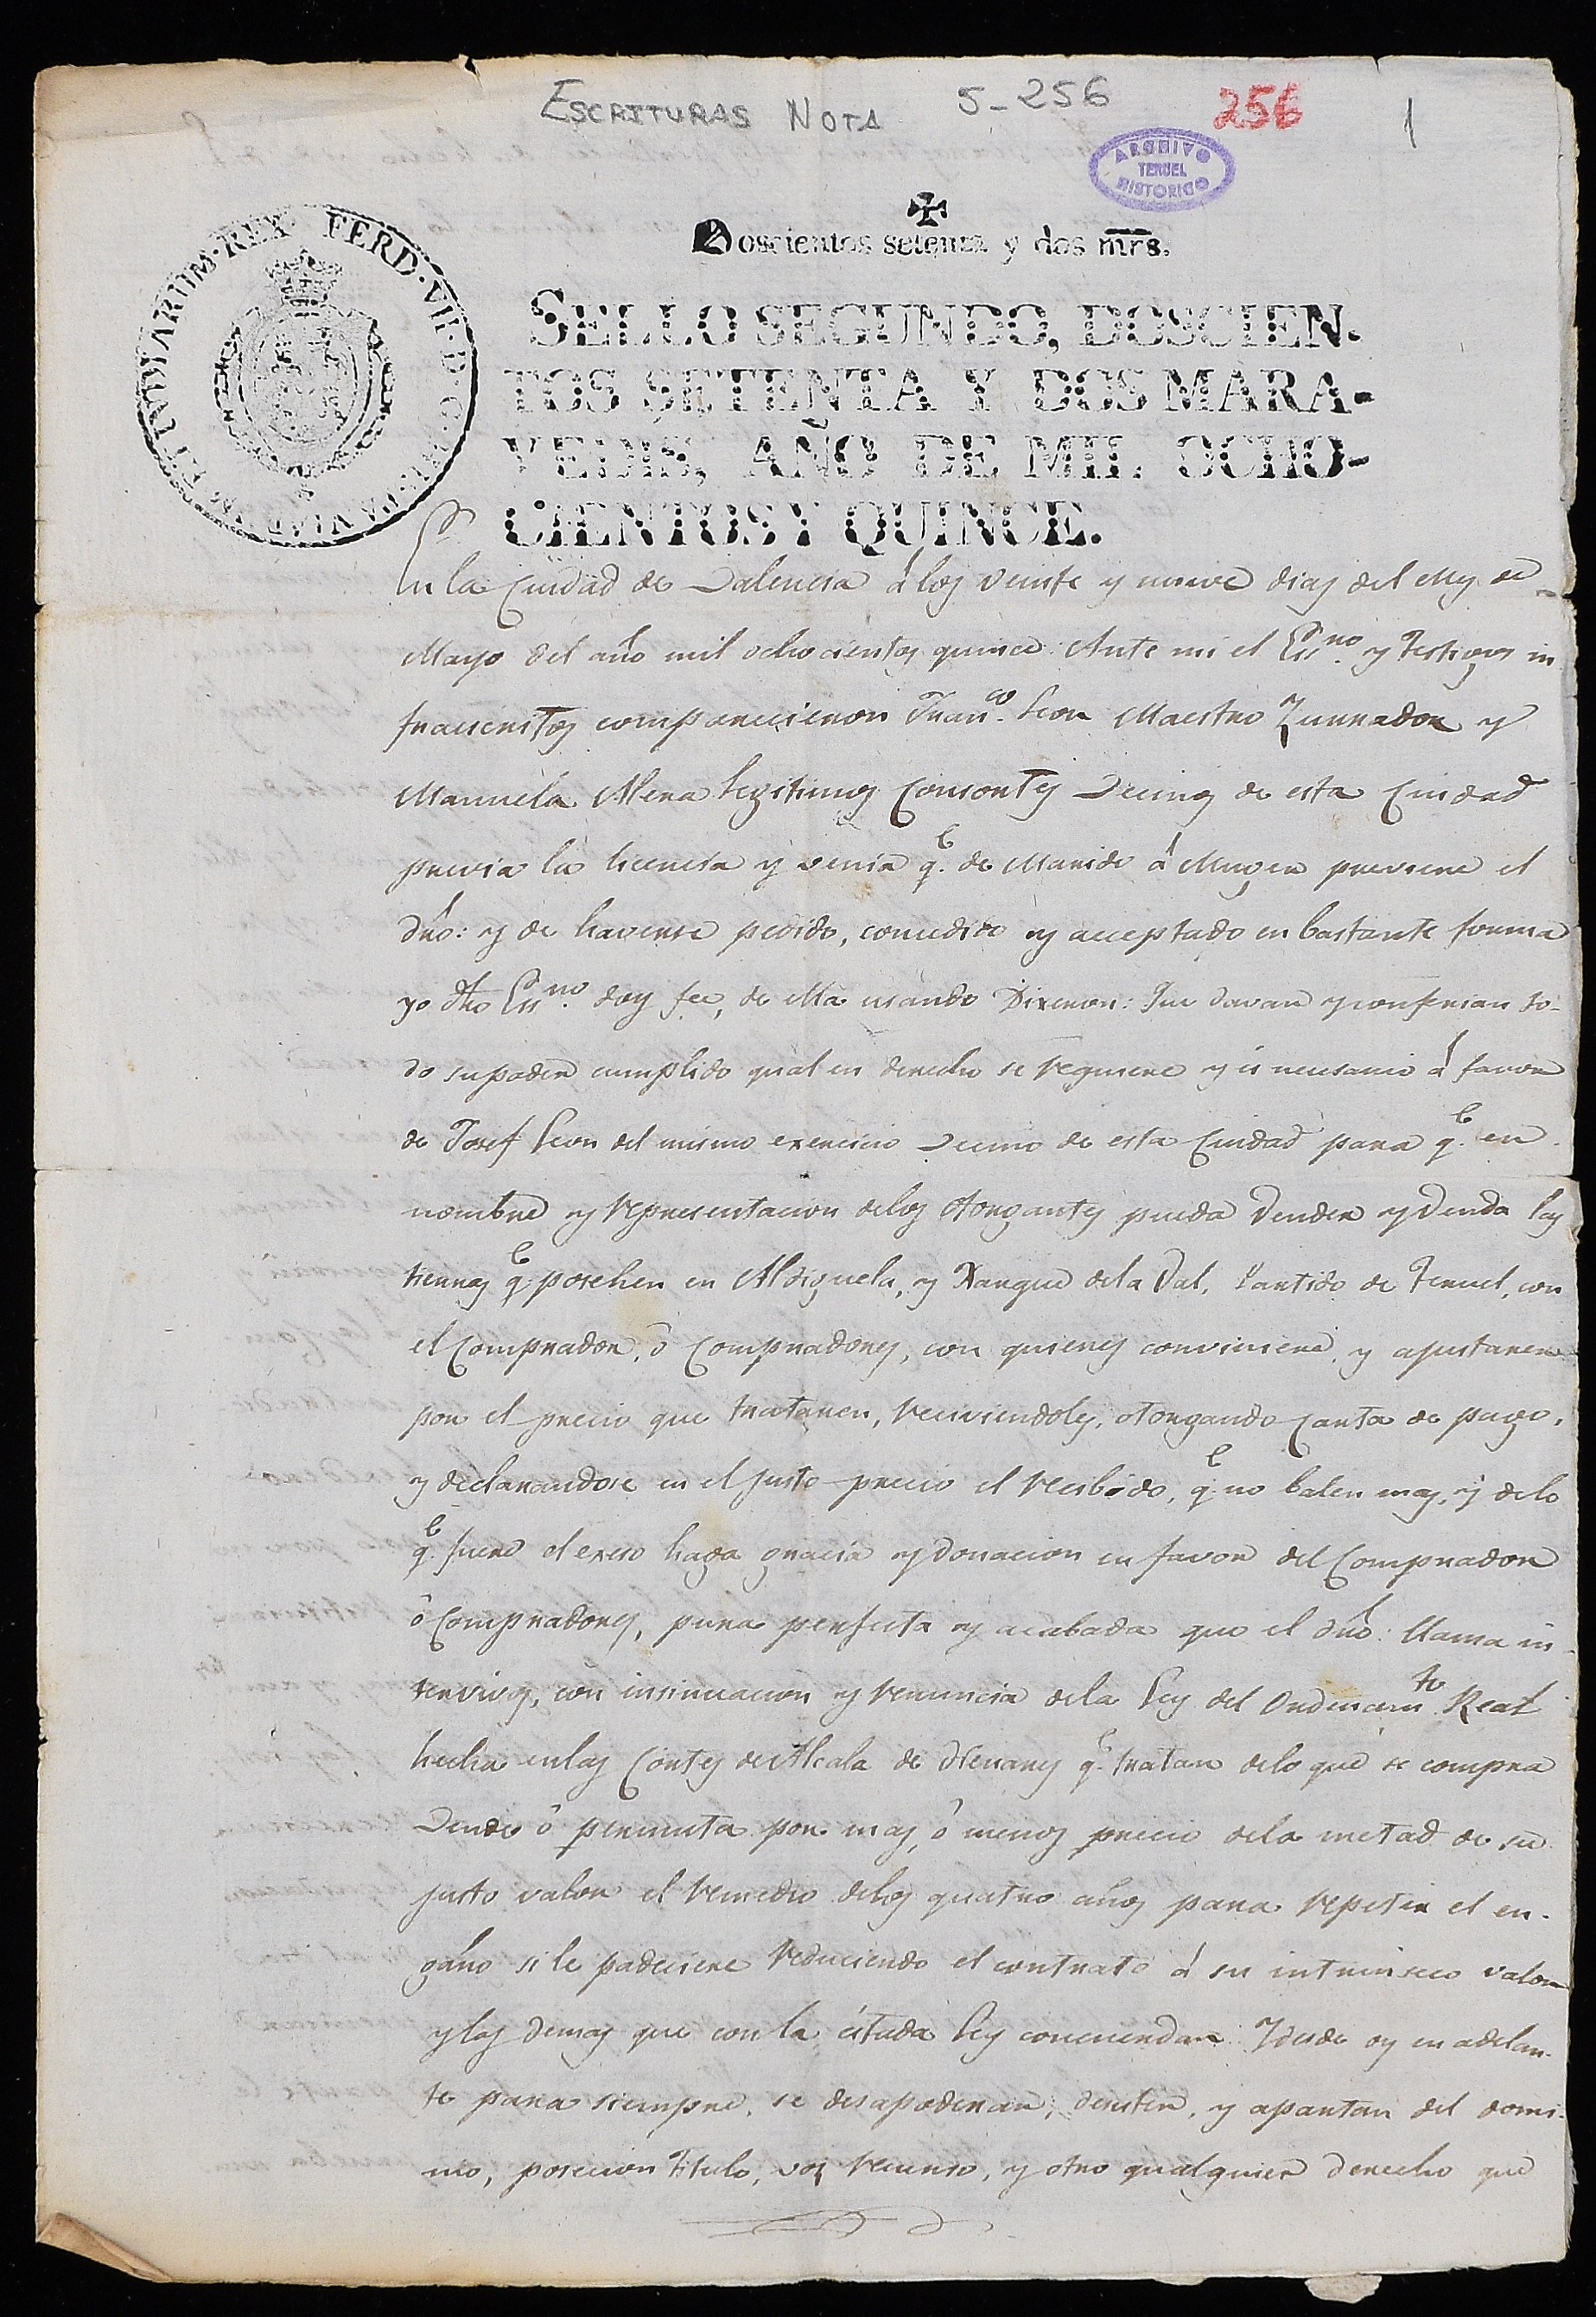 ESCRITURAS NOTA 5-256
256
1
ARCHIVO
TERUEL
HISTORICO
Doscientos setenta y dos mrs.
FERD. VII. D. G. HISPANIAR. ET INDIARUM. REX
SELLO SEGUNDO, DOSCIEN-
TOS SETENTA Y DOS MARA-
VEDIS, AÑO DE MIL OCHO-
CIENTOS Y QUINCE.
En la Ciudad de Valencia á los veinte y nueve dias del Mes de
Mayo del año mil ochocientos quince: Ante mi el Essno. y Testigos in
fraescritos comparecieron Franco. Leon Maestro Zurrador y
Manuela Mena legitimos Consortes Vecinos de esta Ciudad
previa la licencia y venia qe. de Marido á Muger previene el
dro: y de haverse pedido, concedido y acceptado en bastante forma
yo dho Essno. doy fee, de ella usando Dixeron: Que davan y conferian to-
do su poder cumplido qual en derecho se requiere y es necesario á favor
de Josef Leon del mismo exercicio Vecino de esta Ciudad para qe. en
nombre y representacion delos otorgantes pueda vender y venda las
tierras qe. posehen en Aldeguela, y Xarque dela Val, Partido de Teruel, con
el Comprador, ó Compradores, con quienes conviniere, y ajustaren
por el precio que trataren, reciviendoles, otorgando carta de pago,
y declarandose en el justo precio el recibido, qe. no balen mas, y delo
qe. fuere el exeso haga gracia y donacion en favor del Comprador
ó Compradores, pura perfecta y acabada que el dro: llama in-
tervivos, con insinuacion y renuncia dela Ley del Ordenamto. Real
hecha enlas Cortes de Alcala de Henares qe. tratan delo que se compra
Vende ó permuta por mas, ó menos precio dela metad de su
justo valor el remedio delos quatro años para repetir el en-
gaño si le padeciere reduciendo el contrato á su intrinseco valor
y las demas que con la citada Ley concuerdan: Y desde oy en adelan-
te para siempre, se desapoderan, desisten, y apartan del domi-
nio, posecion titulo, voz recurso, y otro qualquier derecho que